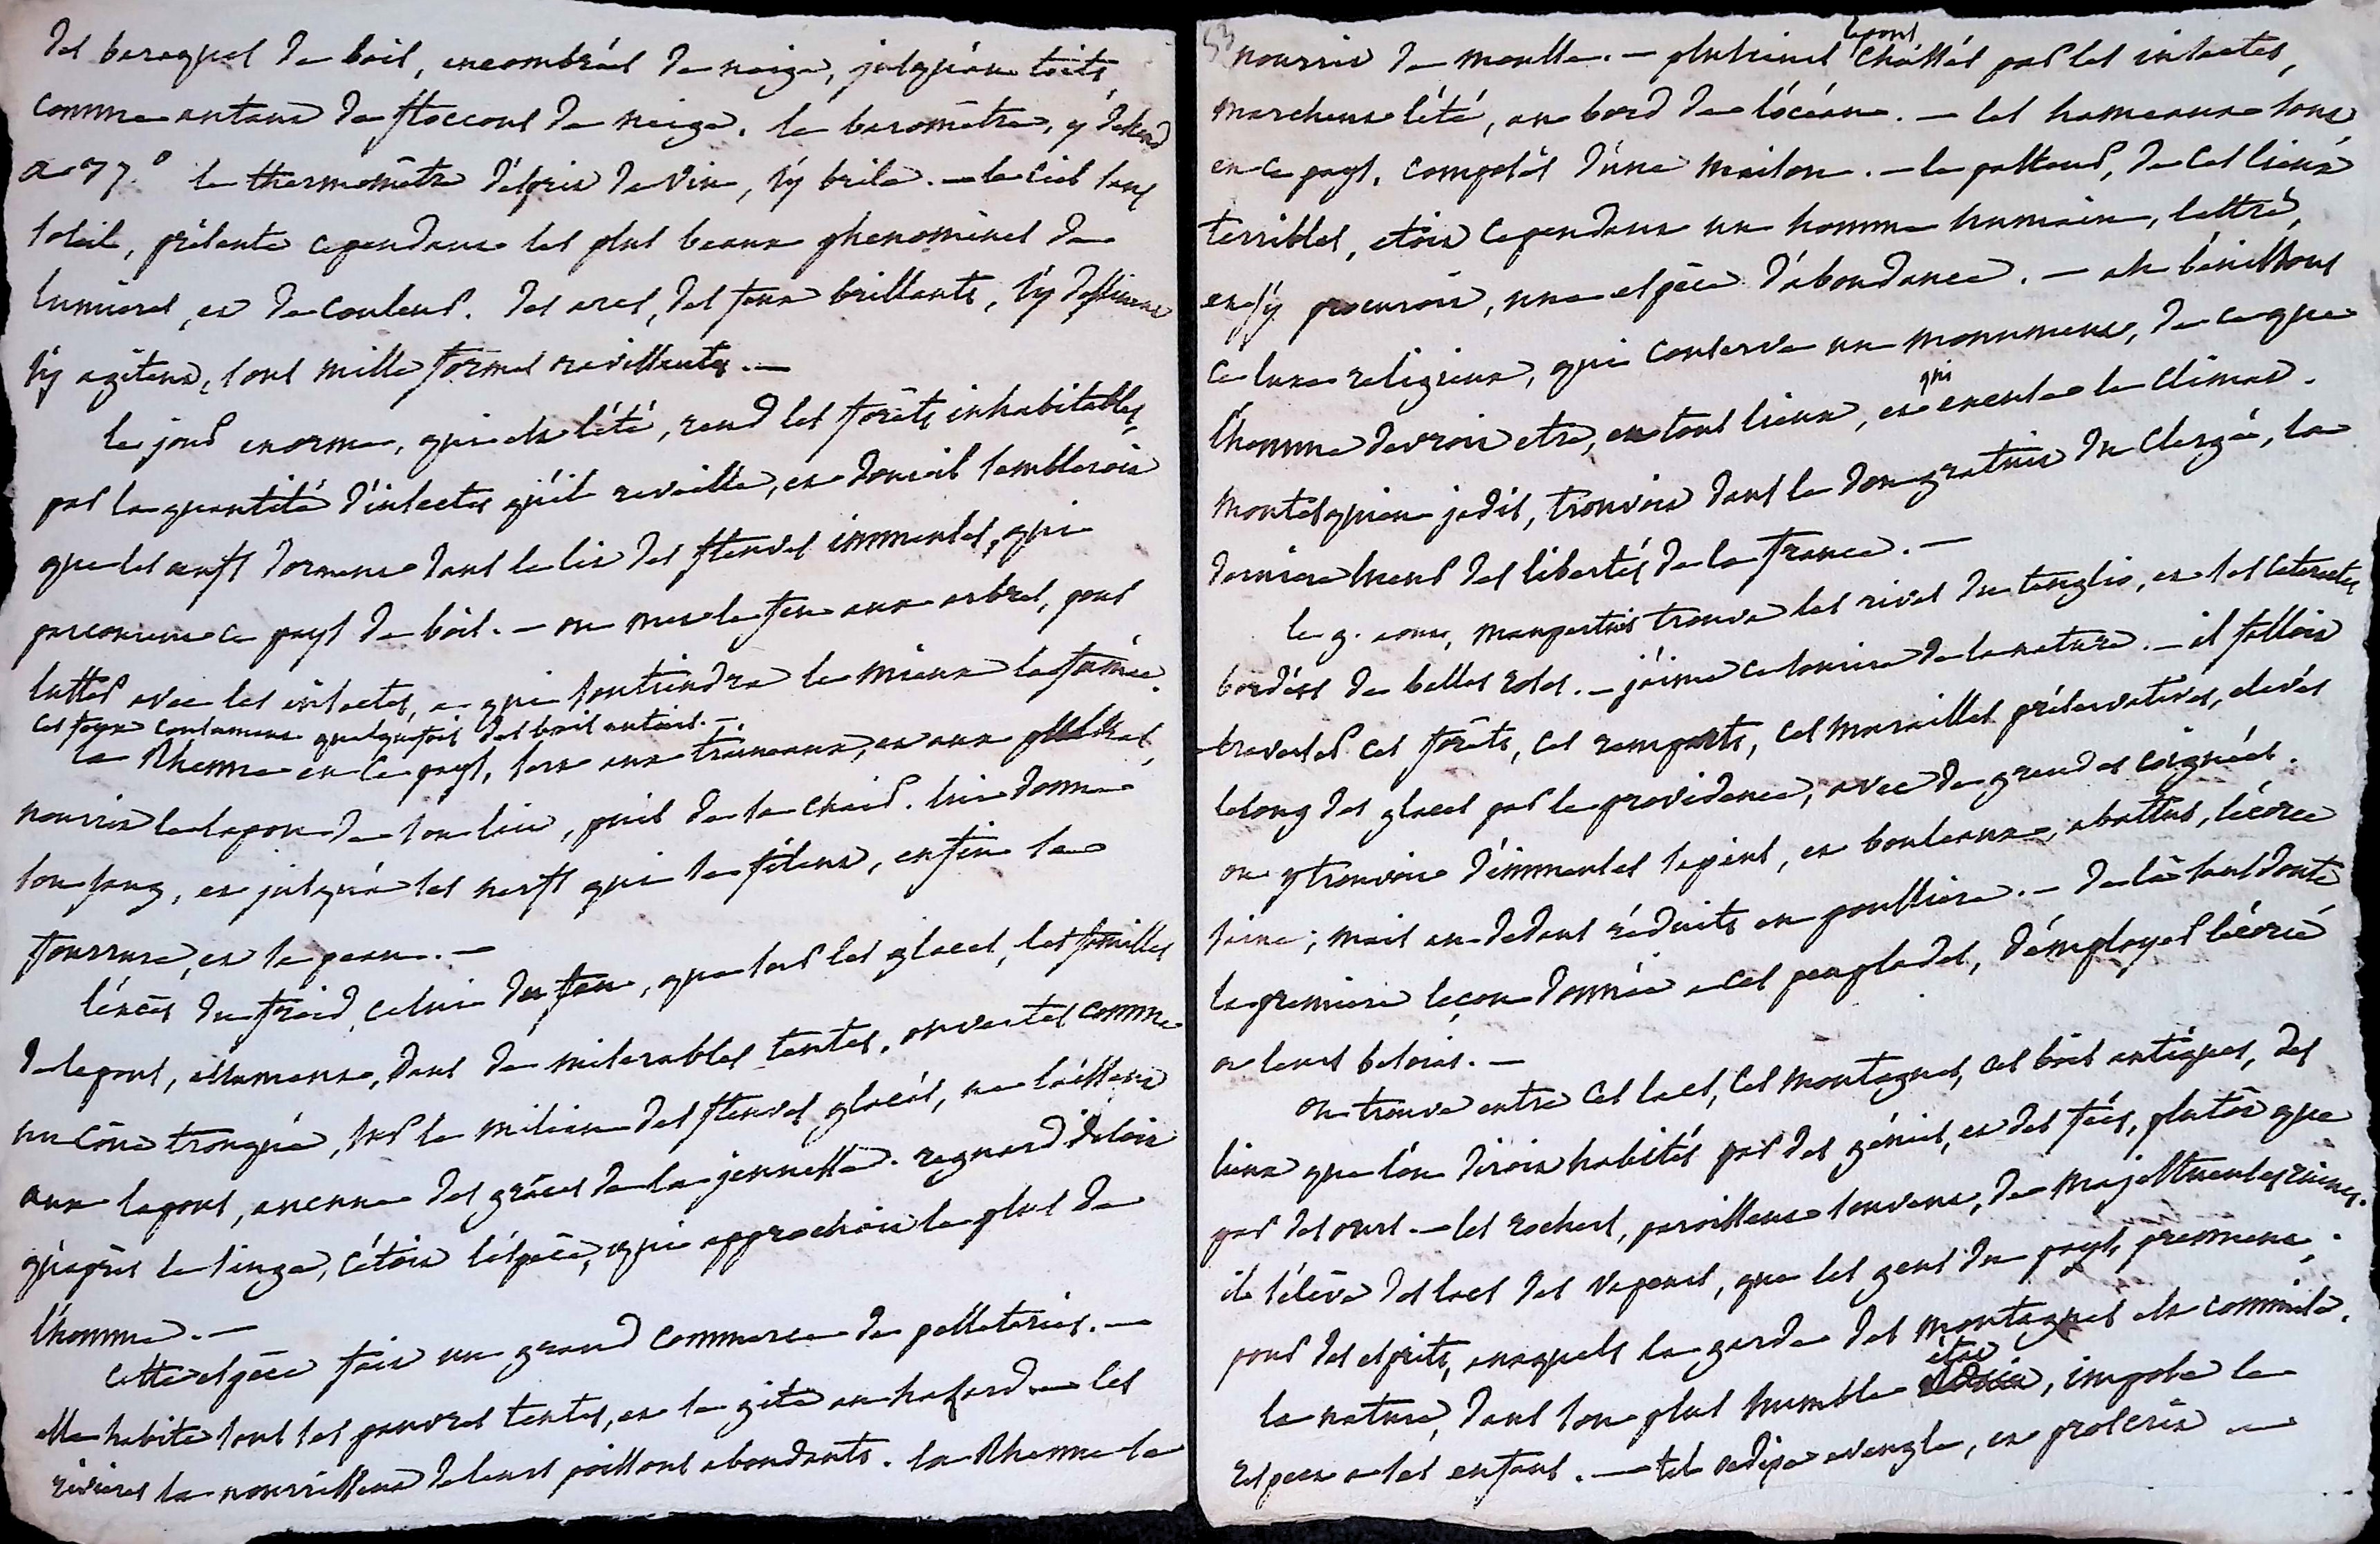 des baraques de bois, encombrées de neige, jusqu'aux toits,
comme autant de floccons de neige. le baromètre, y descend
a 37.° le thermomètre d'esprit de vin, s'y brise. — le ciel sans
soleil, présente cependant les plus beaux phenomènes de
lumieres, et de couleurs. des arcs, des feux brillants, s'y dessinent
s'y agitent, sous mille formes ravissantes. —
le jour enorme, qui est l'été, rend les forêts inhabitables,
par la quantité d'insectes qu'il reveille, et dont il sembleroit
que les œufs dorment dans le lit des fleuves immenses, qui
parcourent ce pays de bois. — on met le feu aux arbres, pour
lutter avec les insectes, a qui soutiendra le mieux la fumée.
ces feux consument quelquefois des bois entiers. —
la Rhenne en ce pays, sert aux traineaux, et aux
nourrit le lapon de son lait, puis de sa chair. lui donne
son sang, et jusqu'à ses nerfs qui se filent, enfin sa
fourrure, et sa peau. —
l'excès du froid, celui du feu, que sur les glaces, les familles
de lapons, allument, dans de miserables tentes, ouvertes comme
un cône tronqué, sur le milieu des fleuves glacés, ne laissent
aux lapons, aucune des grâces de la jeunesse. regnard disoit
qu'après le singe, c'étoit l'espèce, qui approchoit le plus de
l'homme. —
cette espèce fait un grand commerce de pelleteries. —
elle habite sous ses pauvres tentes, et se gite au hasard — les
rivieres la nourrissent de leurs poissons abondants. la Rhenne se
53 nourrit de mousse. — plusieurs lapons chassés par les insectes,
marchent l'été, au bord de l'océan. — les hameaux sont
en ce pays, composés d'une maison. — le pasteur, de ces lieux
terribles, etoit cependant un homme humain, lettré,
et s'y procuroit, une espèce d'abondance. — ah bénissons
ce luxe religieux, qui conserve un monument, de ce que
l'homme devroit etre, en tous lieux, et qui en exile le climat.
Montesquieu jadis, trouvoit dans le don gratuit du Clergé, la
derniere lueur des libertés de la france. —
le 9. aout, maupertuis trouva les rives du tenglio, et ses cataractes
bordées de belles roses. — j'aime ce sourire de la nature. — il falloit
traverser ces forêts, ces remparts, ces murailles préservatives, elevés
le long des glaces par la providence, avec de grandes coignées.
on y trouvoit d'immenses sapins, et bouleaux, abattus, l'écorce
saine; mais au-dedans réduits en poussiere. — de là sans doute
la premiere leçon donnée a ces peuplades, d'employer l'écorce
a leurs besoins. —
On trouve entre ces lacs, ces montagnes, ces bois antiques, des
lieux que l'on diroit habités par des génies, et des fées, plutôt que
par des ours. — les rochers, paroissent souvent, de majestueuses ruines.
il s'élève des lacs des vapeurs, que les gens du pays prennent,
pour des esprits, auxquels la garde des montagnes est commise.
la nature, dans son plus humble être, impose le
respect a ses enfans. — tel œdipe aveugle, et proscrit —